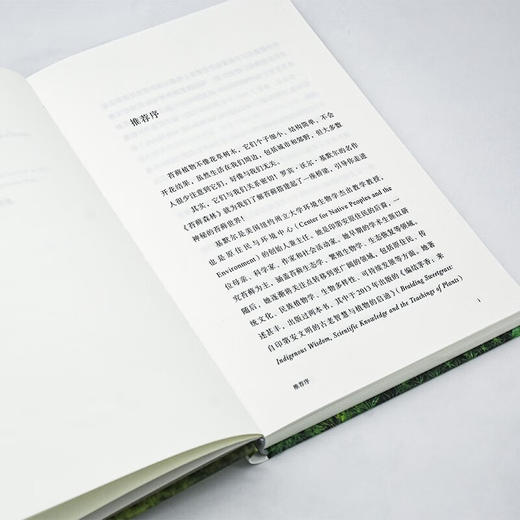 推荐序
苔藓植物不像花草树木，它们个子细小、结构简单，不会
开花结果，虽然生活在我们周边，包括城市和郊野，但大多数
人很少注意到它们，好像与我们无关。
其实，它们与我们关系密切！罗宾·沃尔·基默尔的名作
《苔藓森林》就为我们了解苔藓搭建起了一座桥梁，引导你走进
神秘的苔藓世界！
基默尔是美国纽约州立大学环境生物学杰出教学教授，
也是原住民与环境中心（Center for Native Peoples and the
Environment）的创始人兼主任。她是印第安原住民的后裔，一
位母亲、科学家、作家和社会活动家。她早期的学术生涯以研
究苔藓为主，涵盖苔藓生态学、繁殖生物学、生态恢复等领域，
随后，她逐渐将关注点转移到更广阔的领域，包括原住民、传
统文化、民族植物学、生物多样性、可持续发展等方面。她著
述甚丰，出版过两本书，其中于 2013 年出版的《编结茅香，来
自印第安文明的古老智慧与植物的启迪》（Braiding Sweetgrass:
Indigenous Wisdom, Scientific Knowledge and the Teachings of Plants）
1
推荐序